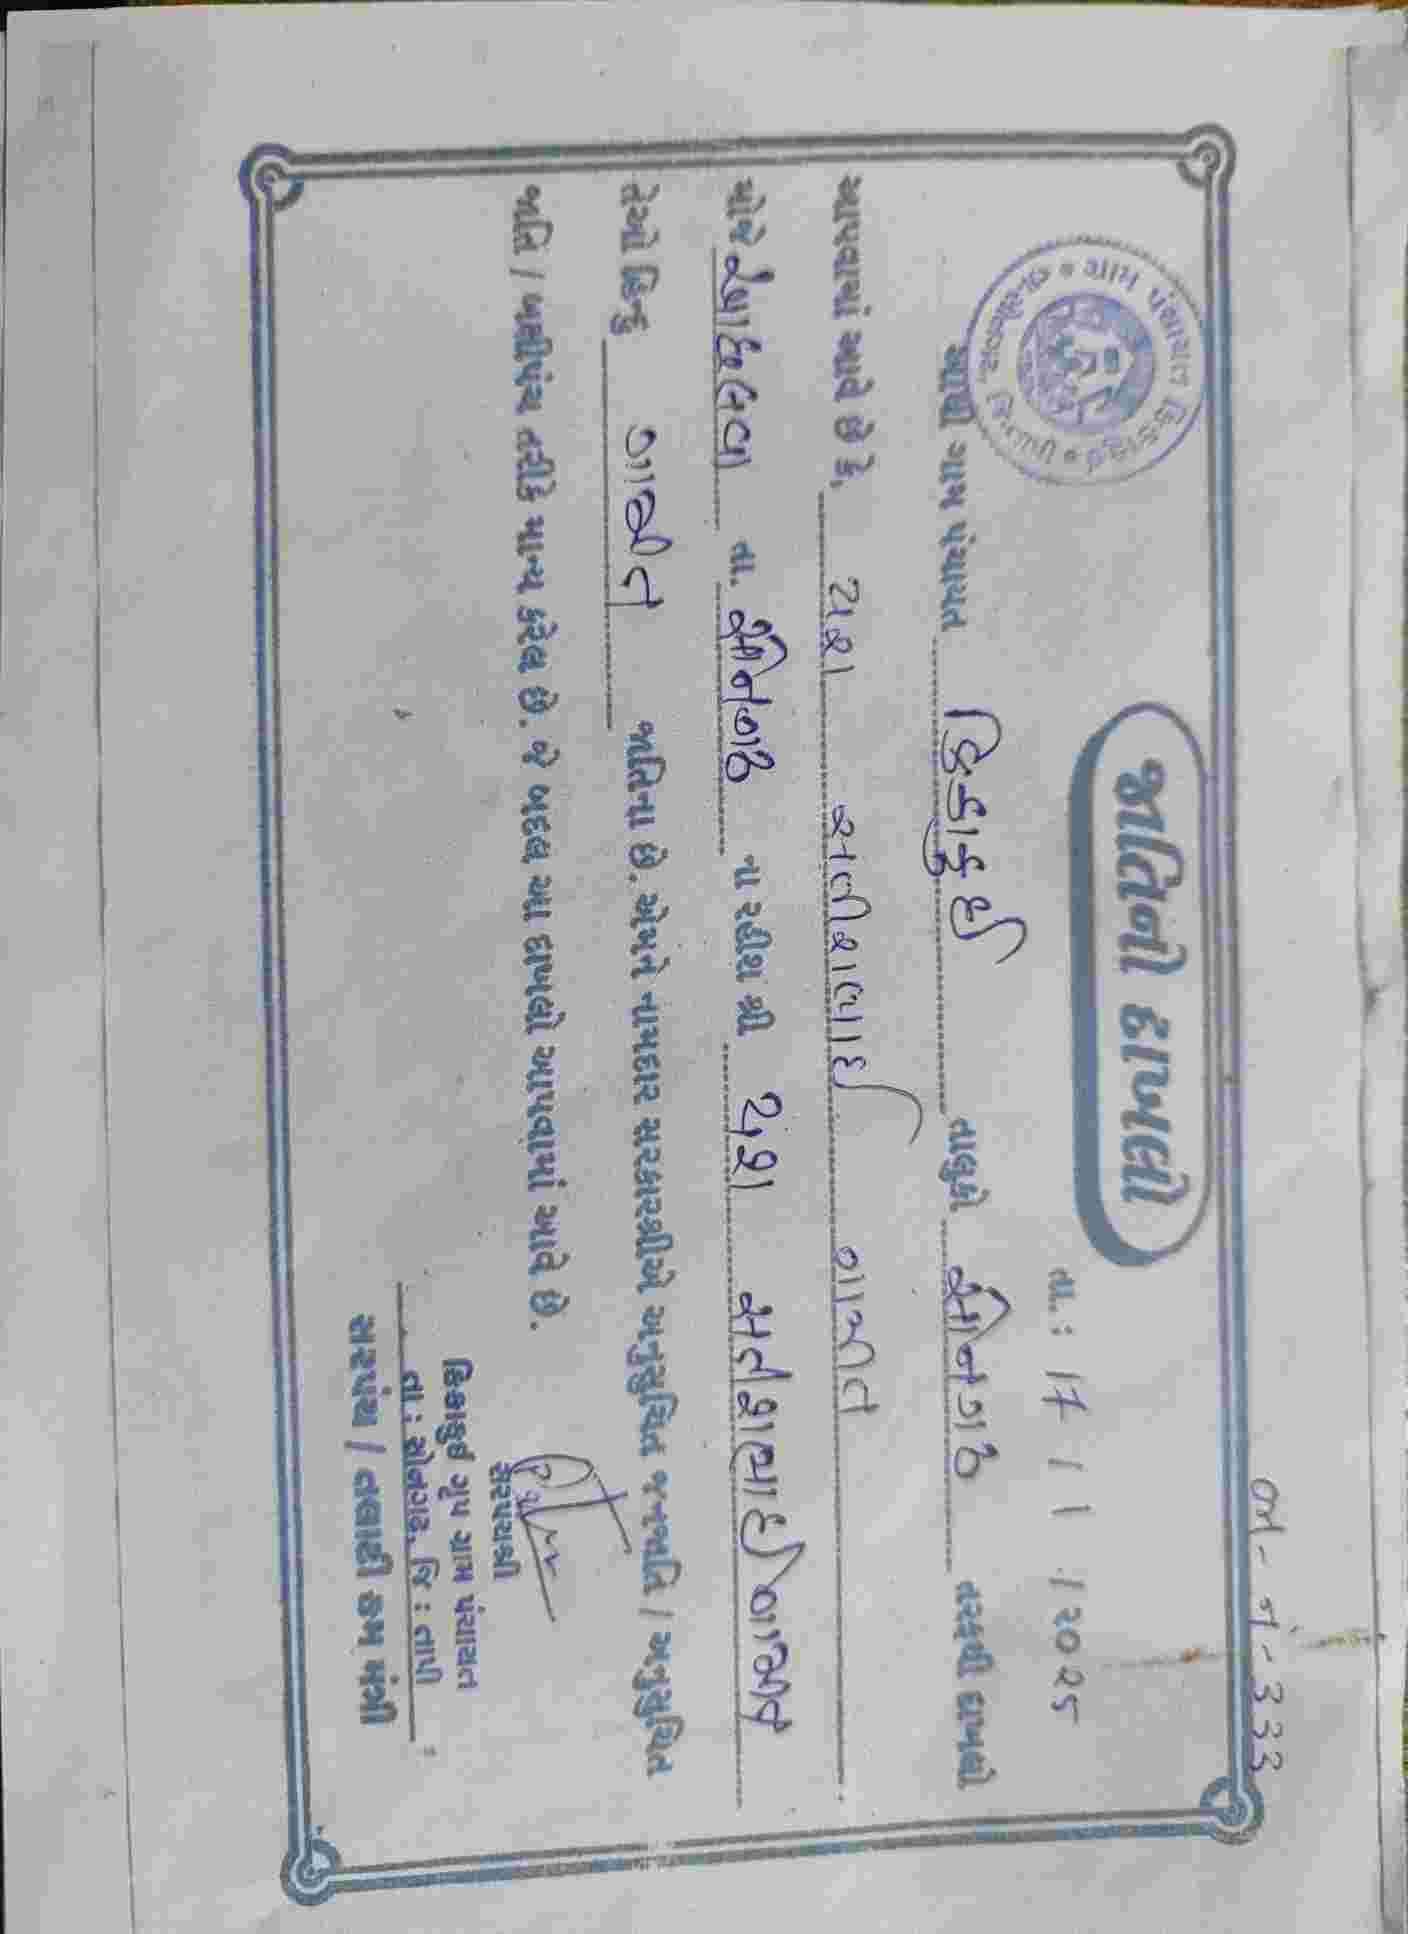 જા- નં- 333
જાતિનો દાખલો
તા.: 17 / 1 / ૨૦૨૫
આથી ગ્રામ પંચાયત કિકાકુઈ તાલુકો સોનગઢ તરફથી દાખલો
આપવામાં આવે છે કે, યશ સતીશભાઈ ગામીત
મોજે તા. સોનગઢ ના રહીશ શ્રી યશ સતીશભાઈ ગામીત
તેઓ હિન્દુ ગામીત જાતિના છે. એમને નામદાર સરકારશ્રીએ અનુસુચિત જનજાતિ / અનુસુચિત
જાતિ / બક્ષીપંચ તરીકે માન્ય કરેલ છે. જે બદલ આ દાખલો આપવામાં આવે છે.
સરપંચશ્રી
કિકાકુઈ ગૃપ ગ્રામ પંચાયત
તા : સોનગઢ, જિ : તાપી
સરપંચ / તલાટી કમ મંત્રી